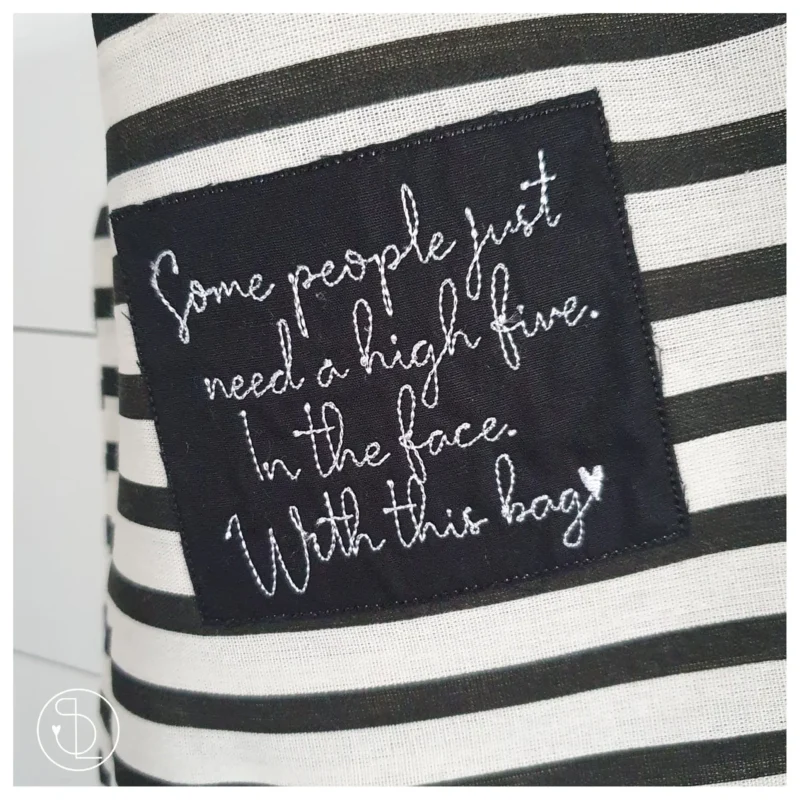 Some people just
need a high five.
In the face.
With this bag